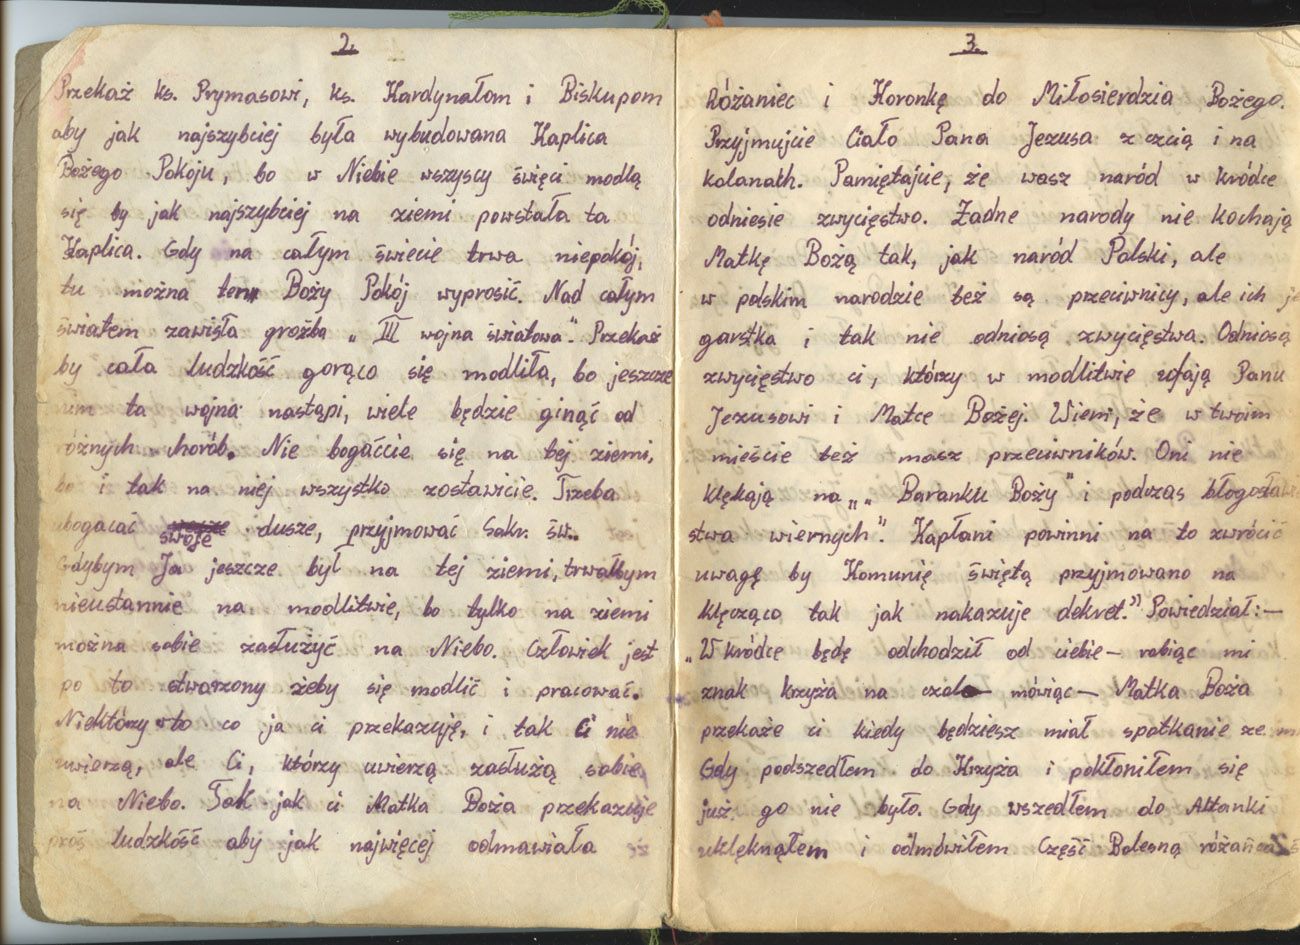 2.
Przekaż ks. Prymasowi, ks. Kardynałom i Biskupom
aby jak najszybciej była wybudowana Kaplica
Bożego Pokoju, bo w Niebie wszyscy święci modlą
się by jak najszybciej na ziemi powstała ta
Kaplica. Gdy na całym świecie trwa niepokój,
tu można ten Boży Pokój wyprosić. Nad całym
światem zawisła groźba „ III wojna światowa". Przekaż
by cała ludzkość gorąco się modliła, bo jeszcze
nim ta wojna nastąpi, wiele będzie ginąć od
różnych chorób. Nie bogaćcie się na tej ziemi,
bo i tak na niej wszystko zostawicie. Trzeba
ubogacać swoje dusze, przyjmować Sakr. św..
Gdybym Ja jeszcze był na tej ziemi, trwałbym
nieustannie na modlitwie, bo tylko na ziemi
można sobie zasłużyć na Niebo. Człowiek jest
po to stworzony żeby się modlić i pracować.
Niektórzy w to co ja ci przekazuję, i tak ci nie
uwierzą, ale Ci, którzy uwierzą zasłużą sobie
na Niebo. Tak jak ci Matka Boża przekazuje
proś ludzkość aby jak najwięcej odmawiała
3.
Różaniec i Koronkę do Miłosierdzia Bożego.
Przyjmujcie Ciało Pana Jezusa z czcią i na
kolanach. Pamiętajcie, że wasz naród w kródce
odniesie zwycięstwo. Żadne narody nie kochają
Matkę Bożą tak, jak naród Polski, ale
w polskim narodzie też są przeciwnicy, ale ich
garstka i tak nie odniosą zwycięstwa. Odniosą
zwycięstwo ci, którzy w modlitwie ufają Panu
Jezusowi i Matce Bożej. Wiem, że w twoim
mieście też masz przeciwników. Oni nie
klękają na „ „ Baranku Boży" i podczas błogosław
stwa wiernych". Kapłani powinni na to zwrócić
uwagę by Komunię świętą przyjmowano na
klęcząco tak jak nakazuje dekret." Powiedział: —
„W kródce będę odchodził od ciebie — robiąc mi
znak krzyża na czole — mówiąc — Matka Boża
przekaże ci kiedy będziesz miał spotkanie ze
Gdy podszedłem do Krzyża i pokłoniłem się
już go nie było. Gdy wszedłem do Altanki
uklęknąłem i odmówiłem Część Bolesną różańca